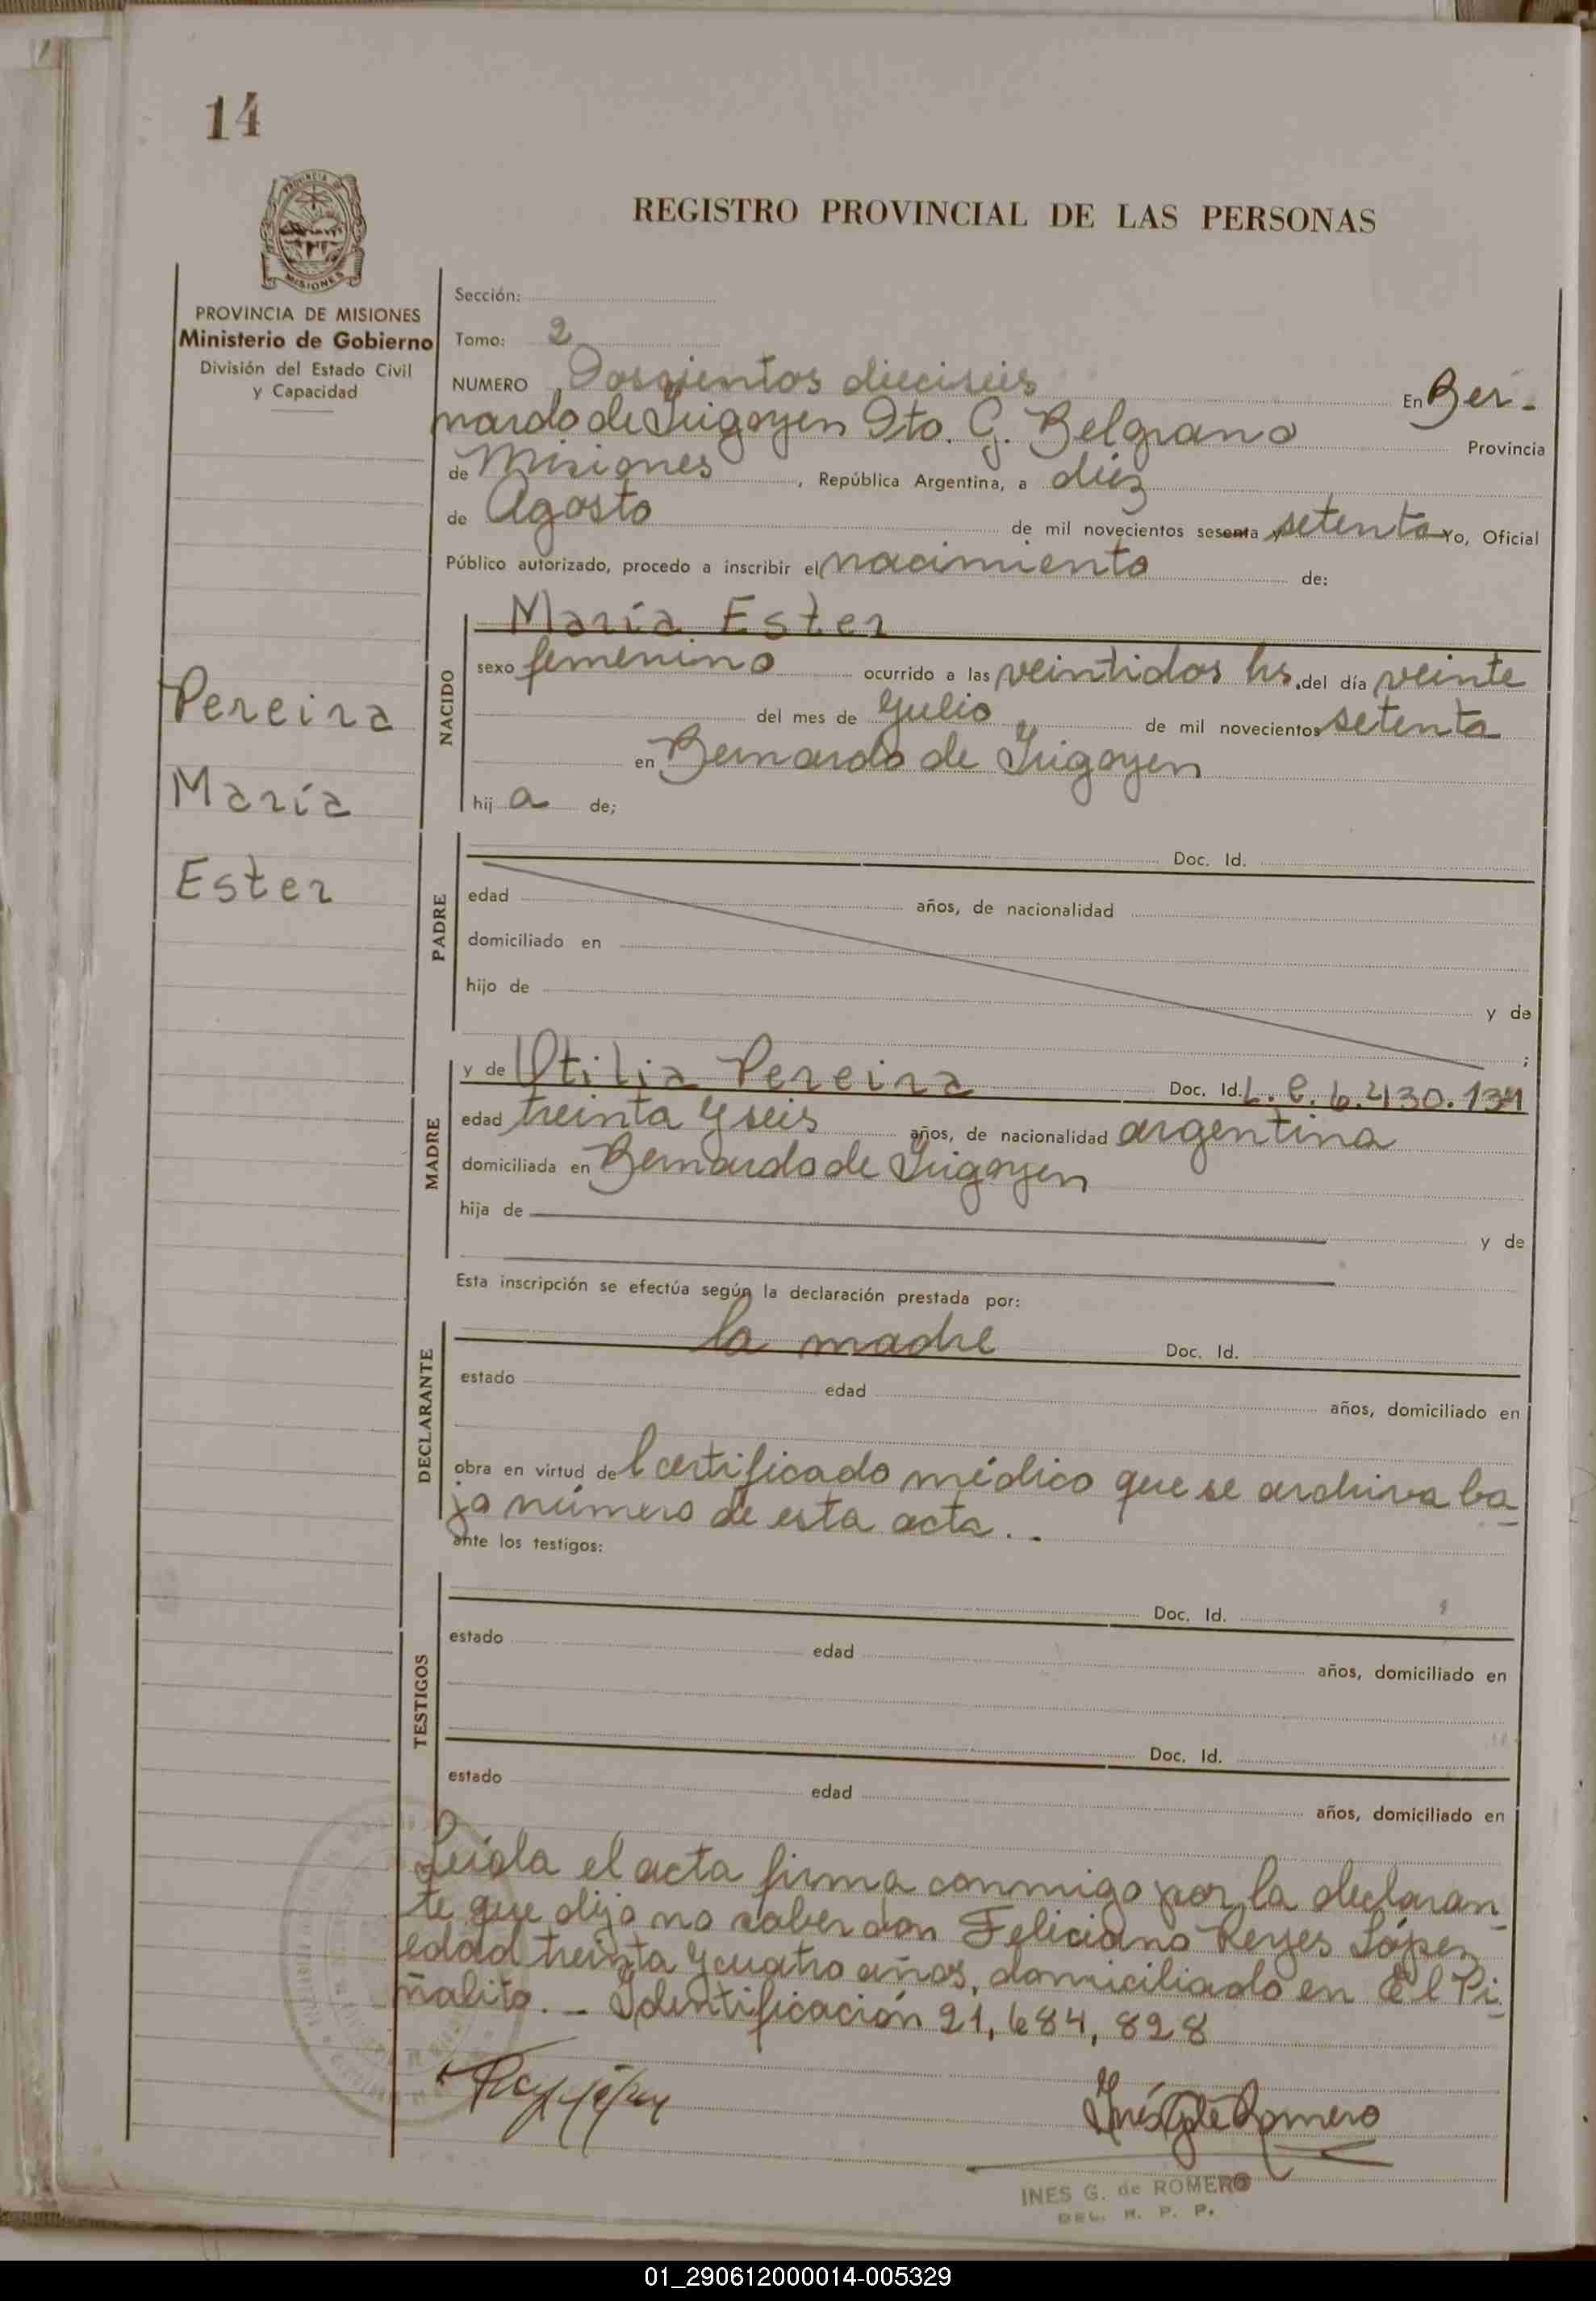 14
REGISTRO PROVINCIAL DE LAS PERSONAS
PROVINCIA DE MISIONES
Ministerio de Gobierno
División del Estado Civil
y Capacidad
Sección:
Tomo: 2
NUMERO Doscientos dieciseis En Ber-
nardo de Irigoyen Dto. G. Belgrano Provincia
de Misiones, República Argentina, a diez
de Agosto de mil novecientos sesenta y setenta Yo, Oficial
Público autorizado, procedo a inscribir el nacimiento de:
Pereira
María
Ester
NACIDO
María Ester
sexo femenino ocurrido a las veintidos hs. del día veinte
del mes de Julio de mil novecientos setenta
en Bernardo de Irigoyen
hij a de;
PADRE
Doc. Id.
edad años, de nacionalidad
domiciliado en
hijo de y de
;
MADRE
y de Otilia Pereira Doc. Id. L. C. 6.430.134
edad treinta y seis años, de nacionalidad argentina
domiciliada en Bernardo de Irigoyen
hija de y de
Esta inscripción se efectúa según la declaración prestada por:
DECLARANTE
la madre Doc. Id.
estado edad años, domiciliado en
obra en virtud de l certificado médico que se archiva ba
jo número de esta acta..-
ante los testigos:
TESTIGOS
Doc. Id.
estado edad años, domiciliado en
Doc. Id.
estado edad años, domiciliado en
Leída el acta firma conmigo por la declaran_
te que dijo no saber don Feliciano Reyes López
edad treinta y cuatro años, domiciliado en El Pi_
ñalito. - Identificación 21,684,828
Inés G de Romero
INES G. de ROMERO
DEL. R. P. P.
01_290612000014-005329